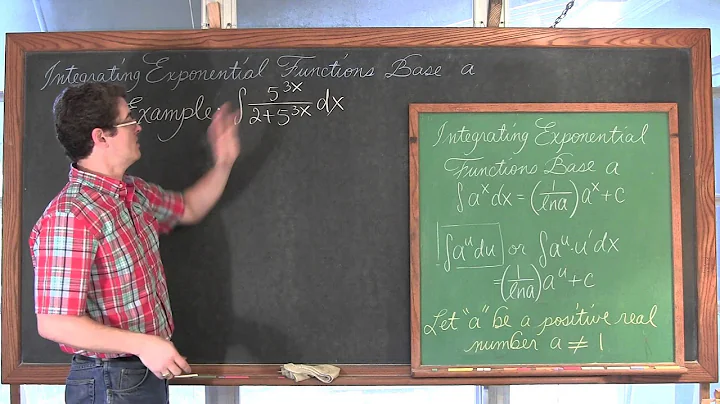 Integrating Exponential Functions Base a
Example: ∫ 5^{3x}/(2+5^{3x}) dx
Integrating Exponential
Functions Base a
∫a^x dx = (1/ln a) a^x + c
∫a^u du or ∫a^u · u' dx
= (1/ln a) a^u + c
Let "a" be a positive real
number a ≠ 1